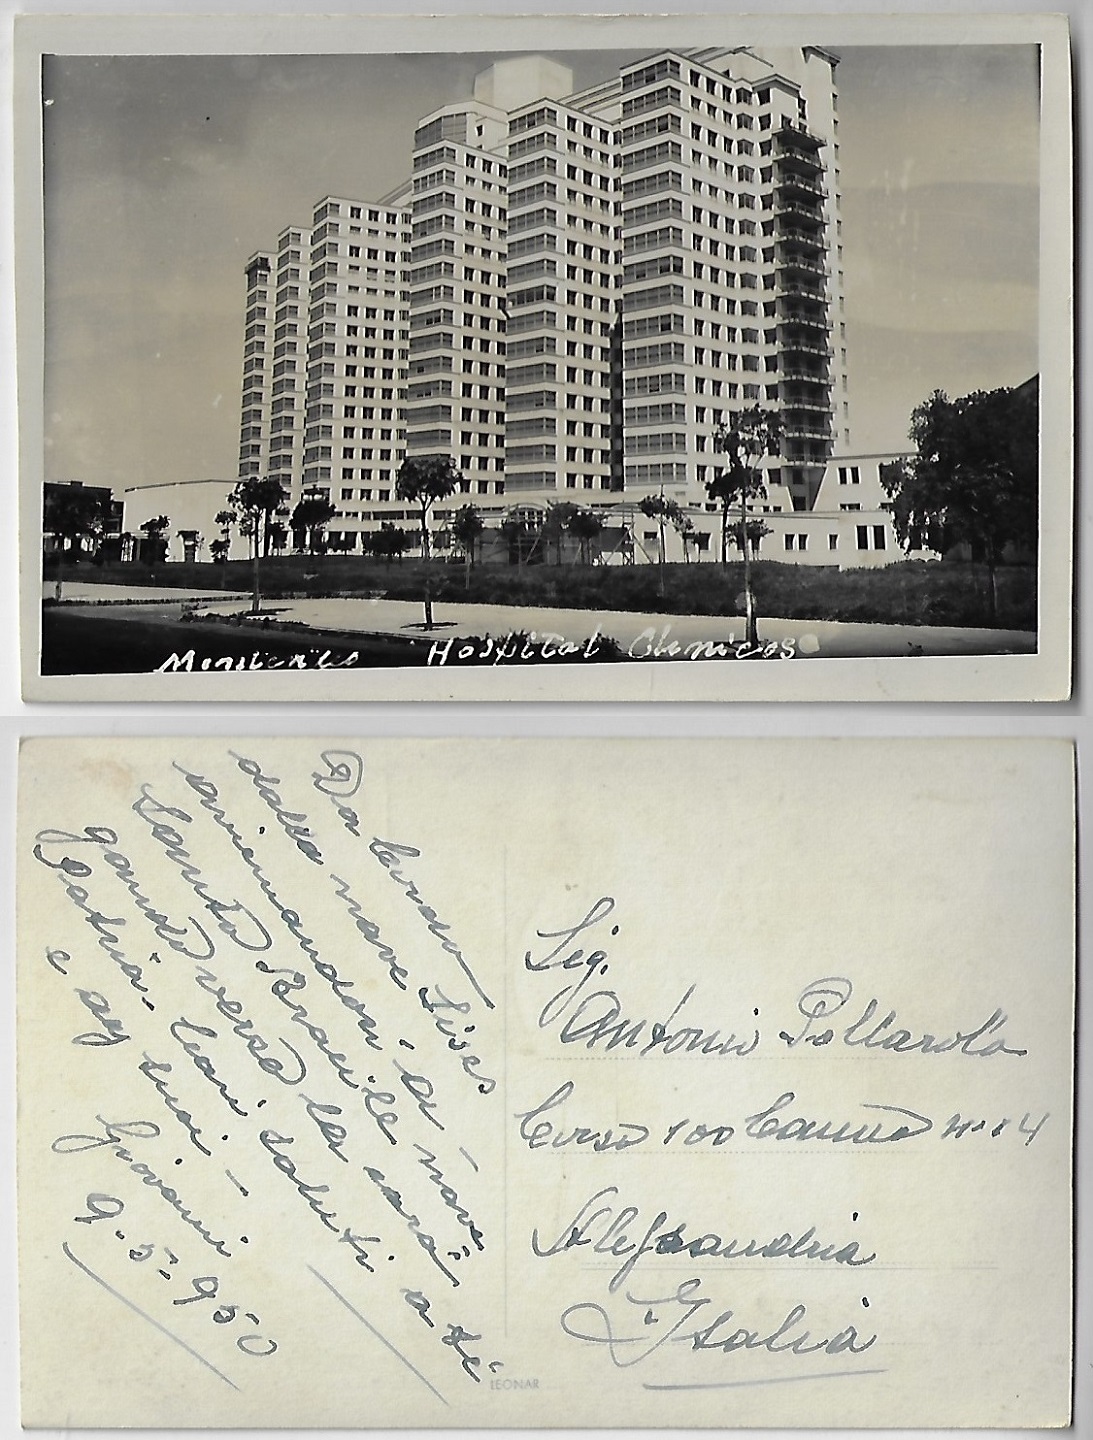 Montevideo Hospital Clinicas
Da bordo
dalla nave Sises
avvicinandosi a
Santo Brasile navi
gando verso la cara
Patria. Cari saluti a te
e ag tuoi -
Giovanni
9.5.950
Sig.
Antonio Pollarolo
Corso 100 Cannoni N. 14
Alessandria
Italia
LEONAR